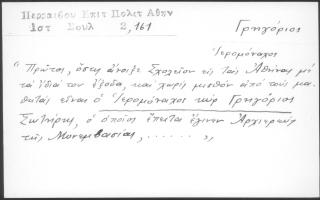 Περραιβου Επιτ Πολιτ Αθην
Ιστ Σουλ 2,161
Γρηγόριος
Ἱερομόναχος
"Πρῶτος, ὅστις ἄνοιξε Σχολεῖον εἰς τὰς Ἀθήνας μὲ
τὰ ἴδιά του ἔξοδα, καὶ χωρὶς μισθὸν ἀπὸ τοὺς μα-
θητὰς εἶναι ὁ Ἱερομόναχος κὺρ Γρηγόριος
Σωτήρης, ὁ ὁποῖος ἔπειτα ἔγινεν Ἀρχιερεὺς
τῆς Μονεμβασίας, ......"